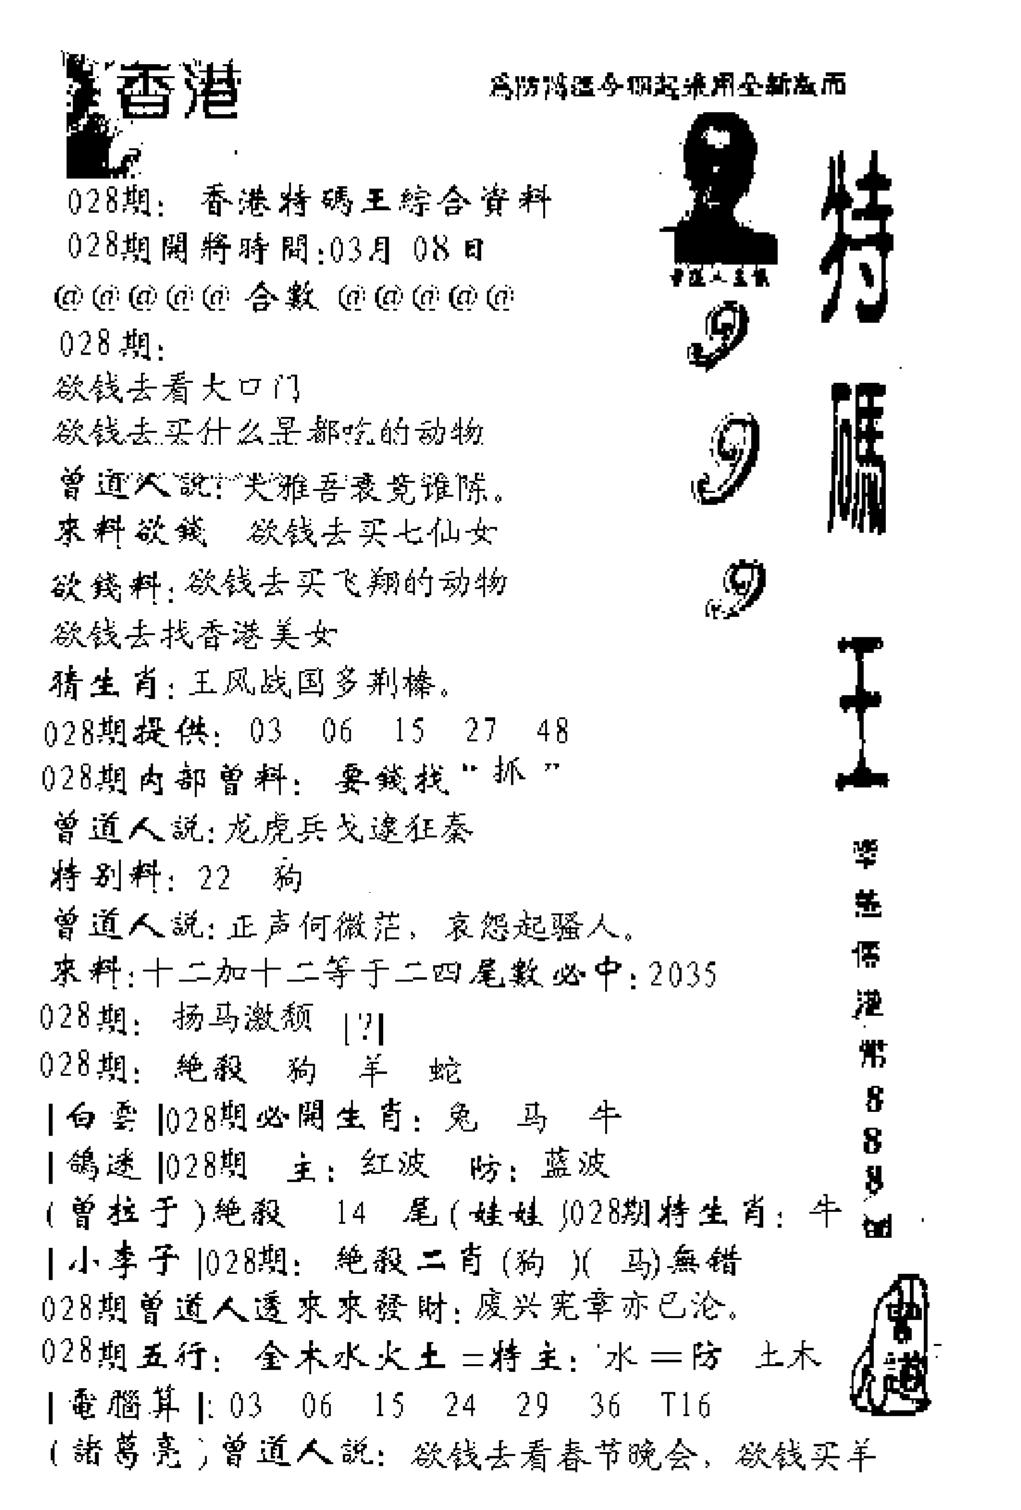 香港
為防 今期起采用全新版面
028期：香港特碼王綜合資料
028期開將時間:03月 08日
@@@@@合數@@@@@
028期：
欲钱去看大口门
欲钱去买什么是都吃的动物
曾道人說：大雅吾衰竞谁陈。
來料欲錢 欲钱去买七仙女
欲錢料：欲钱去买飞翔的动物
欲钱去找香港美女
猜生肖：王风战国多荆榛。
028期提供：03 06 15 27 48
028期内部曾料：要錢找“抓”
曾道人說：龙虎兵戈逮狂秦
特别料：22 狗
曾道人說：正声何微茫，哀怨起骚人。
來料：十二加十二等于二四尾數必中：2035
028期：扬马激颓 [?]
028期：絶殺 狗 羊 蛇
|白雲|028期必開生肖：兔 马 牛
|鴿迷|028期 主：红波 防：蓝波
(曾拉于)絶殺 14 尾(娃娃)028期特生肖：牛
|小李子|028期：絶殺二肖(狗)(马)無错
028期曾道人透來來發財：废兴宪章亦已沦。
028期五行：金木水火土=特主：水=防 土木
|電腦算|：03 06 15 24 29 36 T16
(諸葛亮)曾道人說：欲钱去看春节晚会，欲钱买羊
999
特碼王
港幣888
曾道